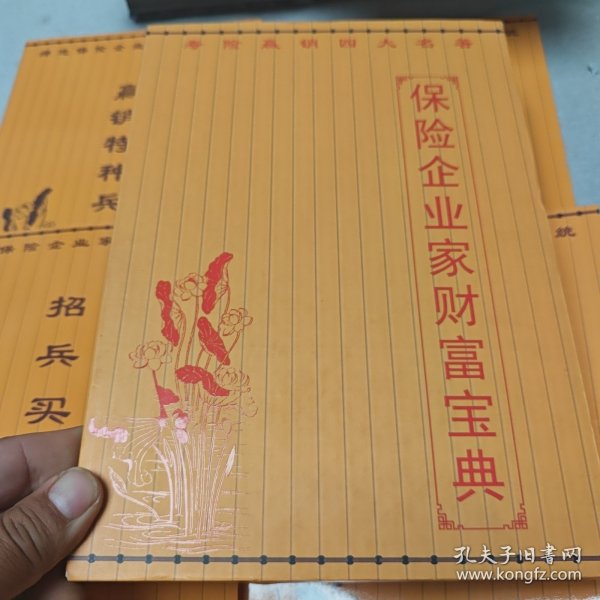 寿险赢销四大名著
保险企业家财富宝典
赢销特种兵
保险企业家
招兵买
统
孔夫子旧书网
www.kongfz.com